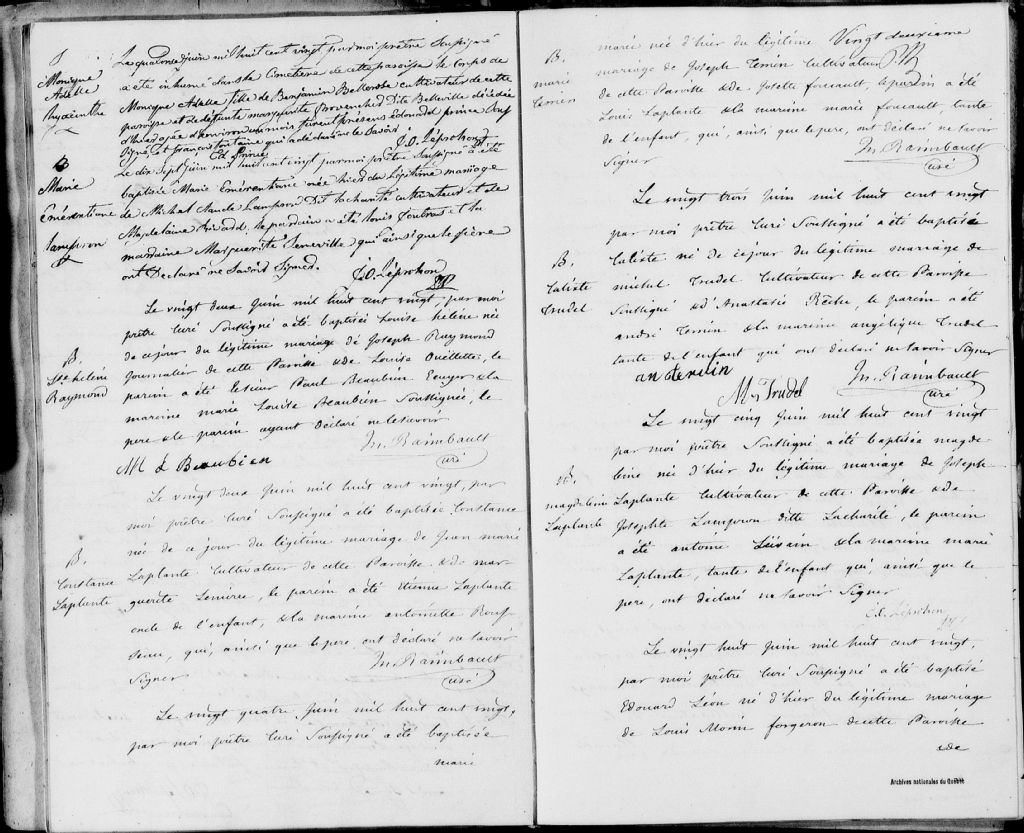 S
Monique
Adelle
hyacinthe
Le quatorze juin mil huit cent vingt par moi prêtre Soussigné
a été inhumé dans le Cimetière de cette paroisse le Corps de
Monique Adelle fille de Benjamin Bellerose cultivateur de cette
paroisse et de défunte marguerite Provencher Dite Belleville décédée
d'hier agée d'environ un mois furent présens édouard prince Souf
Signé, et françois fontaine qui a déclaré ne le Savoir
Ed Prince C.O. Léprohon Ptr
B
Marie
Emérentiene
lampron
Le dix Sept juin mil huit cent vingt par moi prêtre Soussigné a été
baptisée Marie Emérentiene née hier du Légitime mariage
de Michel Claude Lampron Dit la charité cultivateur et de
Magdelaine Ricard, le pardain a été louis Joubras et la
mardaine Marguerite Lemerville qui ainsi que le père
ont Déclaré ne Savoir Signer. C.O. Léprohon
Ptr
B.
Lse héléne
Raymond
Le vingt deux Juin mil huit cent vingt, par moi
prêtre Curé Soussigné a été baptisée Louise héléne née
de ce jour du légitime mariage de Joseph Raymond
Journalier de cette Paroisse & de Louise Ouéllette, le
parein a été le sieur Paul Beaubien Ecuyer & la
mareine marie Louise Beaubien Soussignée, le
pere & le parein ayant déclaré ne le savoir
Jn. Raimbault
M L Beaubien curé
B.
Constance
Laplante
Le vingt deux Juin mil huit cent vingt, par
moi prêtre Curé Soussigné a été baptisée Constance
née de ce jour du légitime mariage de Jean marie
Laplante Cultivateur de cette Paroisse & de mar-
guerite Lemire, le parein a été étienne Laplante
oncle de l'enfant, & la mareine antoinette Rous-
seau, qui, ainsi que le pere ont déclaré ne savoir
Signer Jn. Raimbault
curé
Le vingt quatre Juin mil huit cent vingt,
par moi prêtre Curé Soussigné a été baptisée
marie
B.
marie
Temin
marie née d'hier du légitime Vingt deuxieme
mariage de Joseph Temin Cultivateur
de cette Paroisse & de Josette foucault, le parein a été
Louis Laplante & la mareine marie foucault, tante
de l'enfant, qui, ainsi que le pere, ont déclaré ne savoir
Signer Jn. Raimbault
curé
B.
Caliste
Trudel
Le vingt trois Juin mil huit cent vingt
par moi prêtre Curé Soussigné a été baptisé
Caliste né de ce jour du légitime mariage de
michel Trudel Cultivateur de cette Paroisse
Soussigné & d'Anastasie Rêche, le parein a été
andré Temin & la mareine angélique Trudel
tante de l'enfant qui ont déclaré ne savoir Signer
Jn. Raimbault
M Trudel curé
B.
magdeleine
Laplante
Le vingt cinq Juin mil huit cent vingt
par moi prêtre Soussigné a été baptisée magde
leine née d'hier du légitime mariage de Joseph
Laplante Cultivateur de cette Paroisse & de
Josephte Lampron ditte Lacharité, le parein
a été antoine & la mareine marie
Laplante, tante de l'enfant qui, ainsi que le
pere, ont déclaré ne savoir Signer
C.O. Léprohon
Ptr
Le vingt huit Juin mil huit cent vingt,
par moi prêtre Curé Soussigné a été baptisé
Edouard Léon né d'hier du légitime mariage
de Louis Morin forgeron de cette Paroisse
& de
Archives nationales du Québec